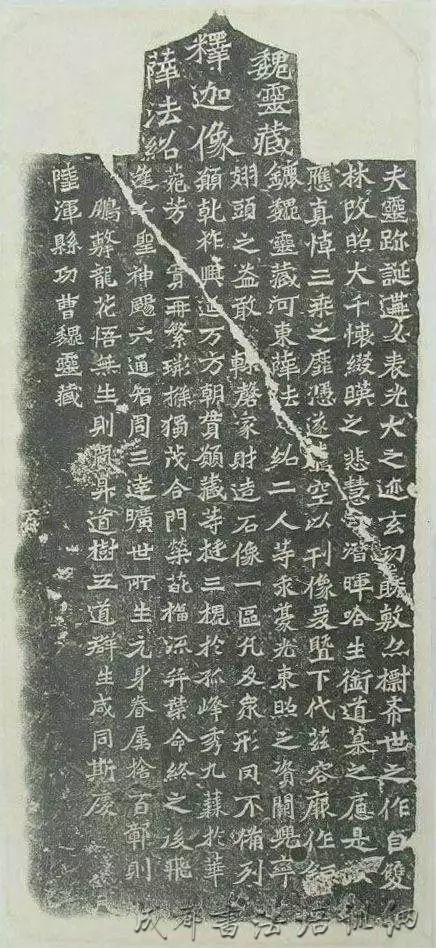 魏靈藏
釋迦像
薛法紹
夫靈跡誕遘必表光大之迹玄功既敷亦摽希世之作自雙
林改照大千懷綴暎之悲慧潛暉唅生銜道慕之痛是
應真悼三乘之靡憑遂空以刊像爰暨下代茲容厥作
鑣魏靈藏河東薛法紹二人等求豪光東照之資闕兜率
翅頭之益敢輒罄家財造石像一區凡及衆形罔不備列
願乾祚興延万方朝貫願藏等挺三槐於孤峰秀九蕀於華
菀芳實再繁荊條獨茂合門榮葩福流弈葉命終之後飛
逢千聖神颺六通智周三達曠世所生元身眷屬捨百鄣則
鵬擊龍花悟無生則鳳昇道樹五道群生咸同斯慶
陸渾縣功曹魏靈藏
成都書法培訓網